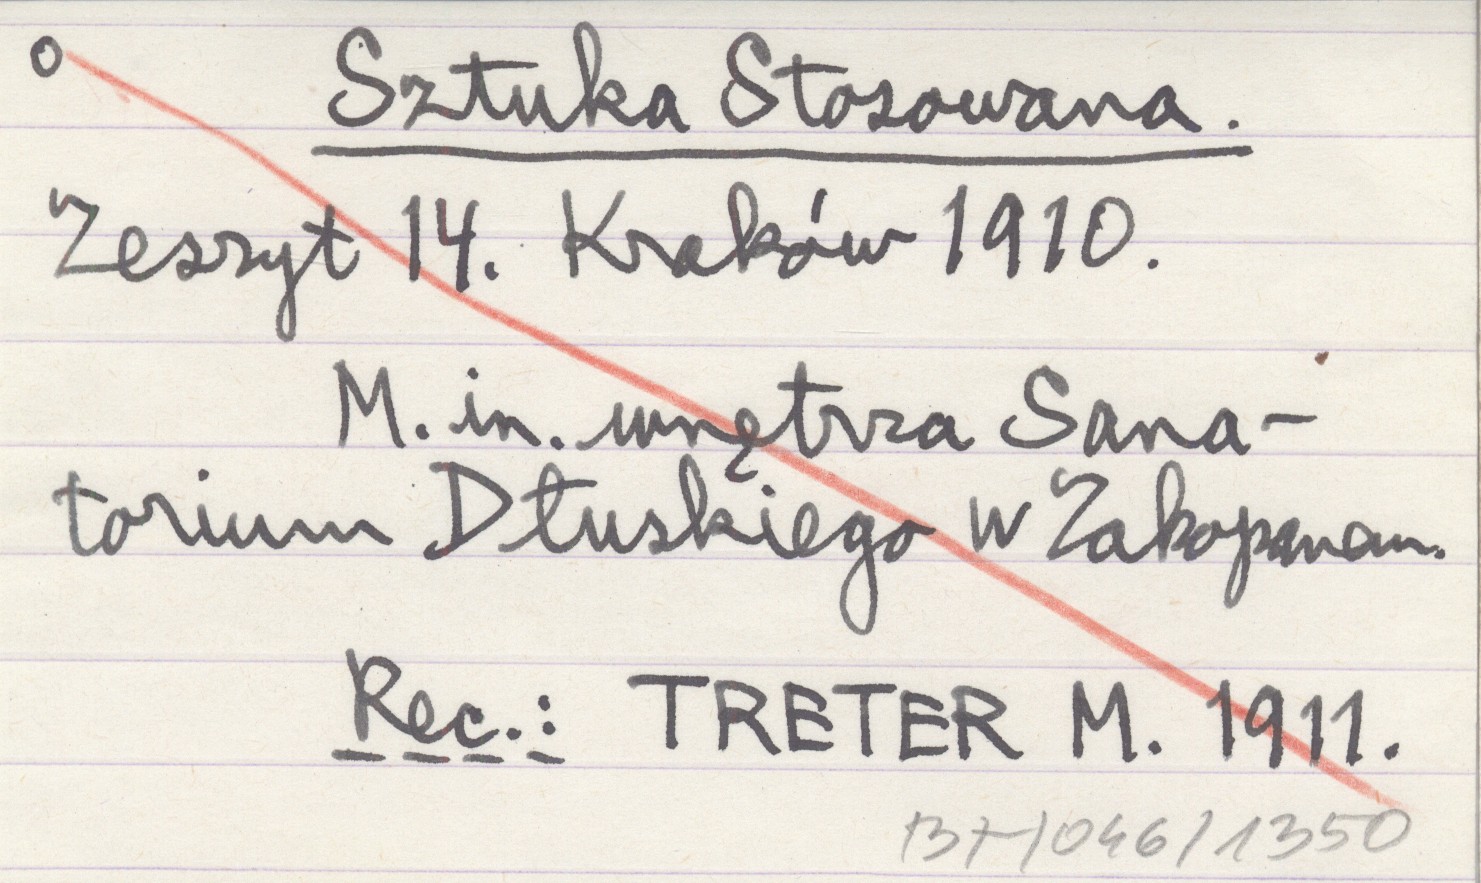 o Sztuka Stosowana.
Zeszyt 14. Kraków 1910.
M. in. wnętrza Sana-
torium Dłuskiego w Zakopanem.
Rec.: TRETER M. 1911.
/046/1350